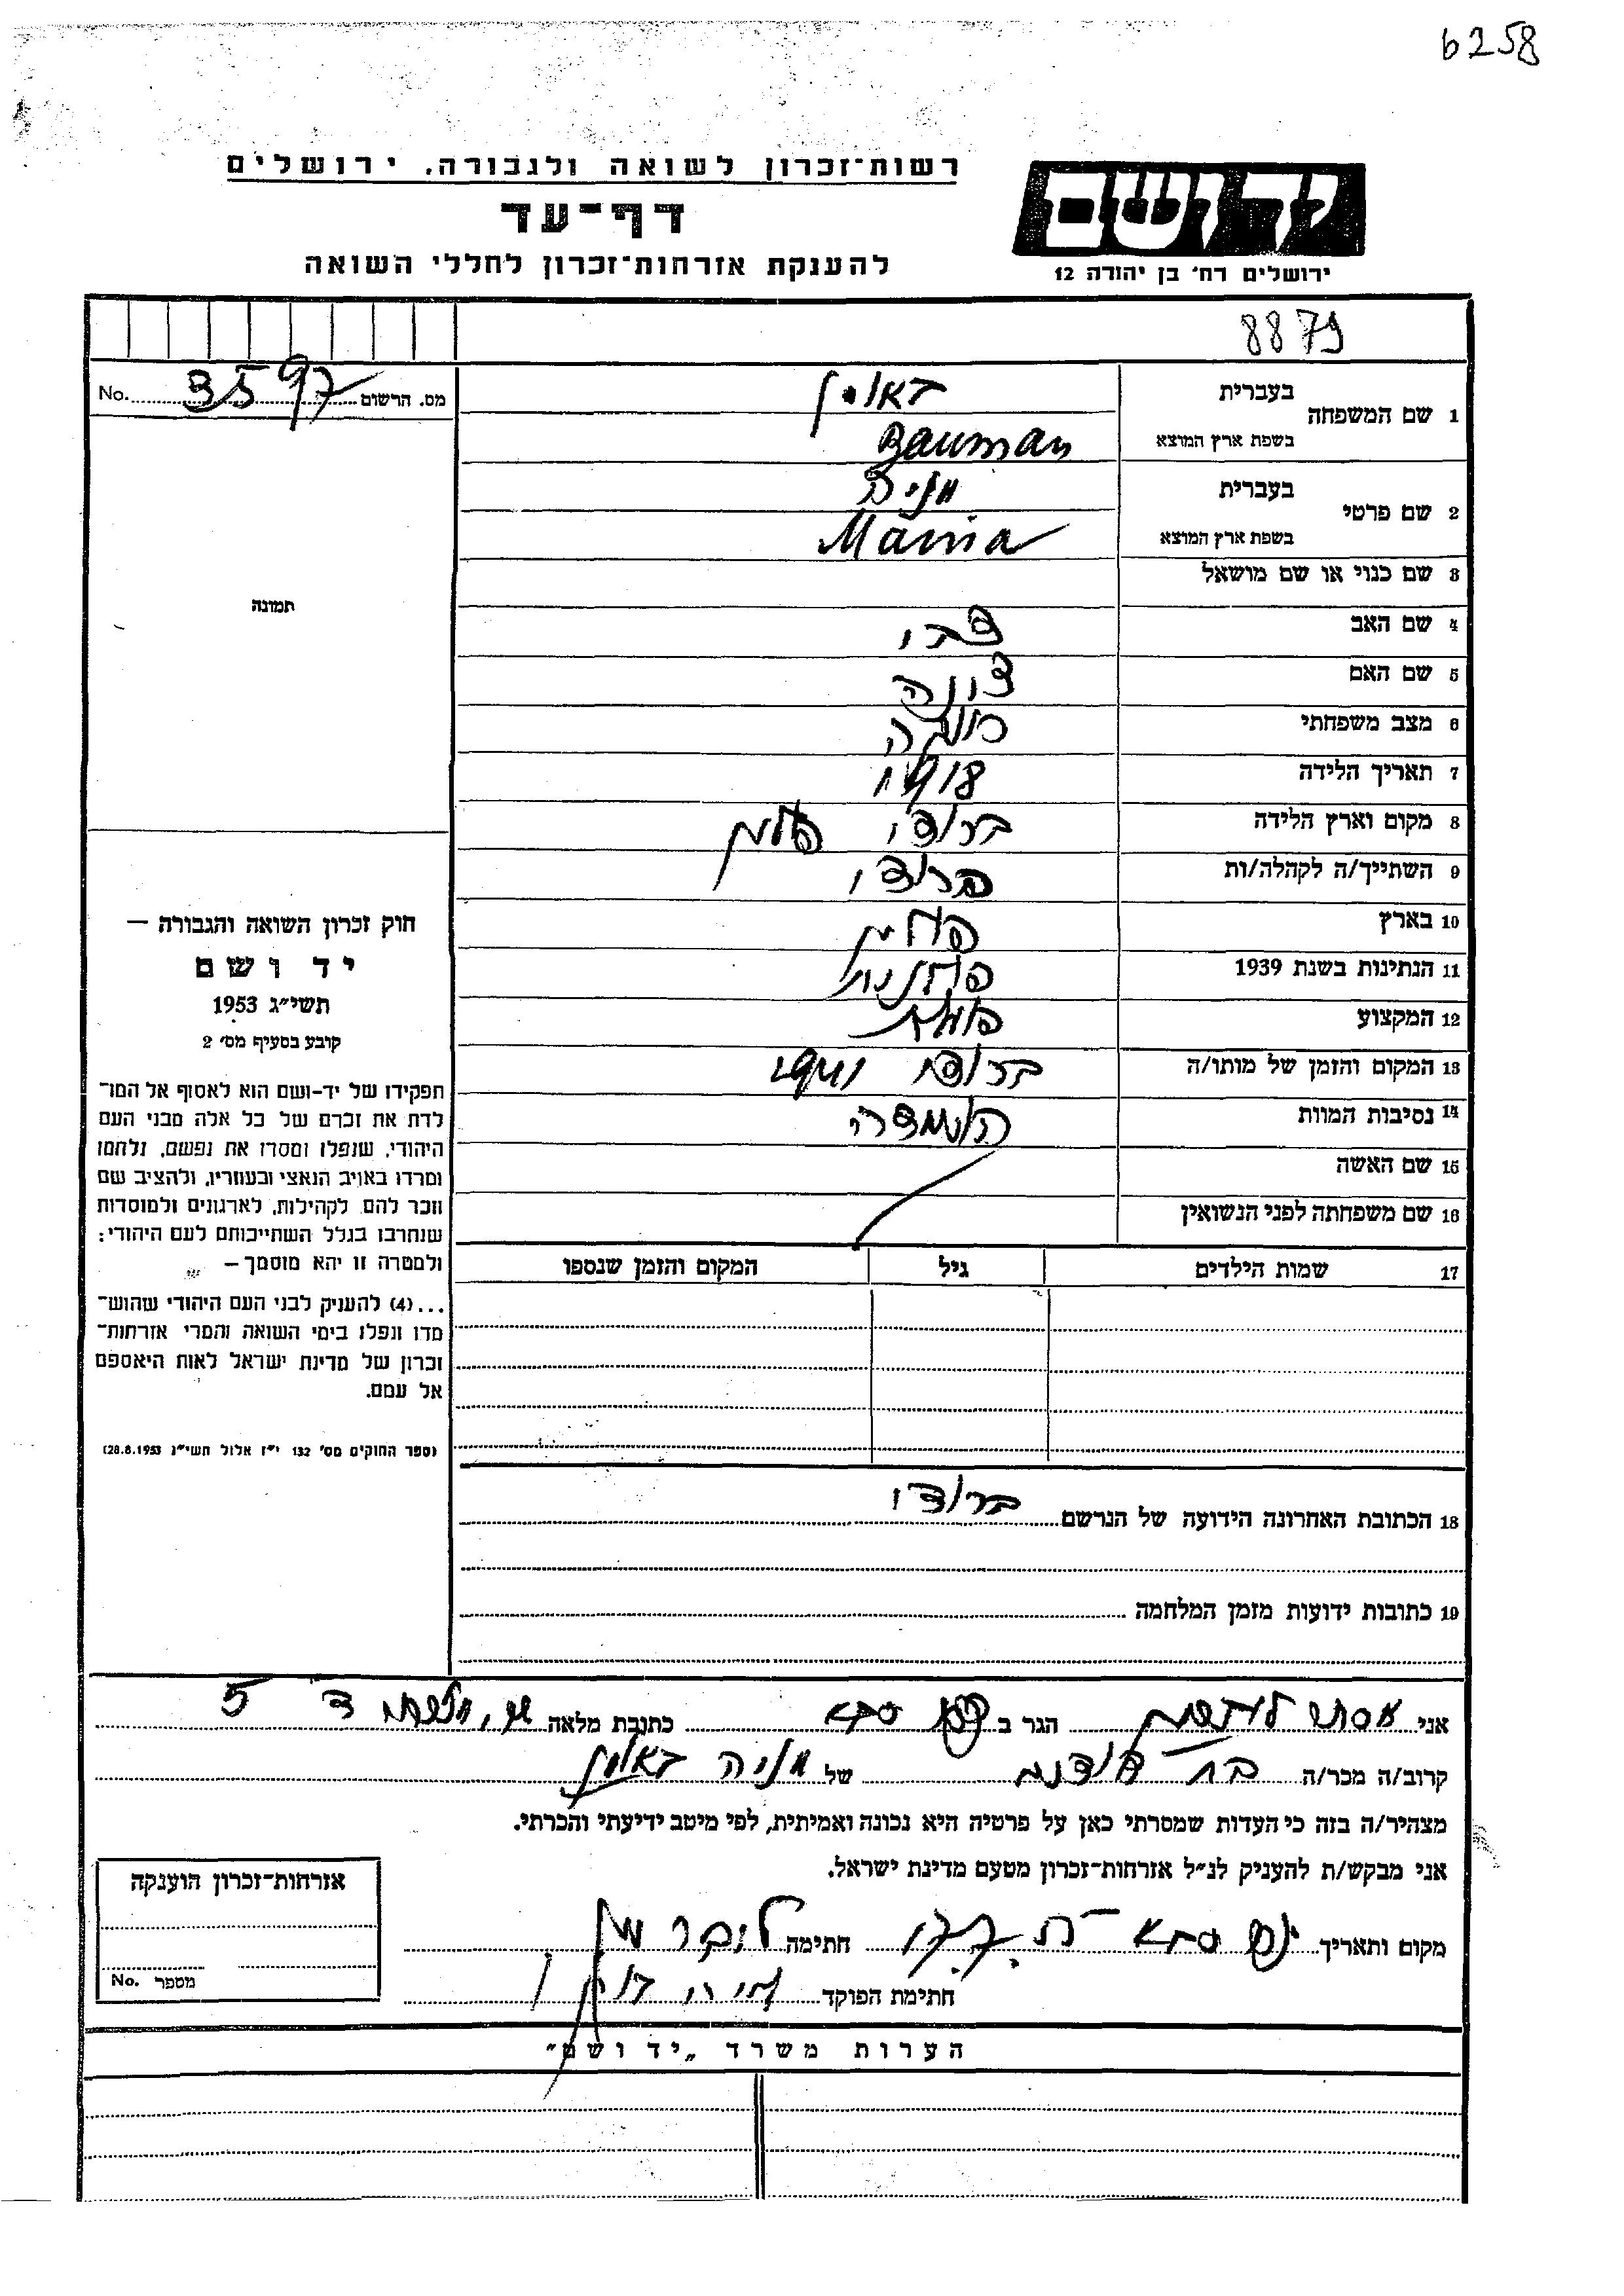 6258
רשות־זכרון לשואה ולגבורה, ירושלים
דף־עד
להענקת אזרחות־זכרון לחללי השואה
יד ושם
ירושלים רח׳ בן יהודה 12
8879
No. 3597 מס. הרשום
1 שם המשפחה
בעברית באומן
בשפת ארץ המוצא Bauman
2 שם פרטי
בעברית מניה
בשפת ארץ המוצא Mania
3 שם כנוי או שם מושאל
4 שם האב
5 שם האם
6 מצב משפחתי
7 תאריך הלידה 1918
8 מקום וארץ הלידה ברודי פולין
9 השתייך/ה לקהלה/ות ברודי
10 בארץ פולין
11 הנתינות בשנת 1939 פולנית
12 המקצוע
13 המקום והזמן של מותו/ה ברודי 1941
14 נסיבות המוות הושמדה
15 שם האשה
16 שם משפחתה לפני הנשואין
17 שמות הילדים גיל המקום והזמן שנספו
תמונה
חוק זכרון השואה והגבורה —
יד ושם
תשי״ג 1953
קובע בסעיף מס׳ 2
תפקידו של יד-ושם הוא לאסוף אל המו־
לדת את זכרם של כל אלה מבני העם
היהודי, שנפלו ומסרו את נפשם, נלחמו
ומרדו באויב הנאצי ובעוזריו, ולהציב שם
וזכר להם, לקהילות, לארגונים ולמוסדות
שנחרבו בגלל השתייכותם לעם היהודי;
ולמטרה זו יהא מוסמך —
...(4) להעניק לבני העם היהודי שהוש־
מדו ונפלו בימי השואה והמרי אזרחות־
זכרון של מדינת ישראל לאות היאספם
אל עמם.
(ספר החוקים מס׳ 132 י״ז אלול תשי״ג 28.8.1953)
18 הכתובת האחרונה הידועה של הנרשם ברודי
19 כתובות ידועות מזמן המלחמה
אני אסתר ליברמן הגר ב כפר סבא כתובת מלאה 5
קרוב/ה מכר/ה בת דודנה של מניה באומן
מצהיר/ה בזה כי העדות שמסרתי כאן על פרטיה היא נכונה ואמיתית, לפי מיטב ידיעתי והכרתי.
אני מבקש/ת להעניק לנ״ל אזרחות־זכרון מטעם מדינת ישראל.
מקום ותאריך כפר סבא חתימה ליברמן
חתימת הפוקד
אזרחות־זכרון הוענקה
No. מספר
הערות משרד „יד ושם״